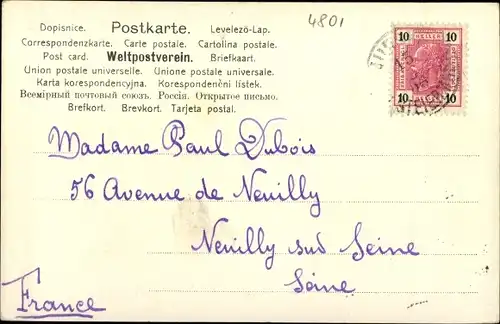 Dopisnice. Postkarte. Levelezö-Lap.
Correspondenzkarte. Carte postale. Cartolina postale.
Post card. Weltpostverein. Briefkaart.
Union postale universelle. Unione postale universale.
Karta korespondencyjna. Korespondenční lístek.
Всемірный почтовый союзъ. Россія. Открытое письмо.
Brefkort. Brevkort. Tarjeta postal.
4801
10 HELLER 10
10 10
Madame Paul Dubois
56 Avenue de Neuilly
Neuilly sur Seine
Seine
France